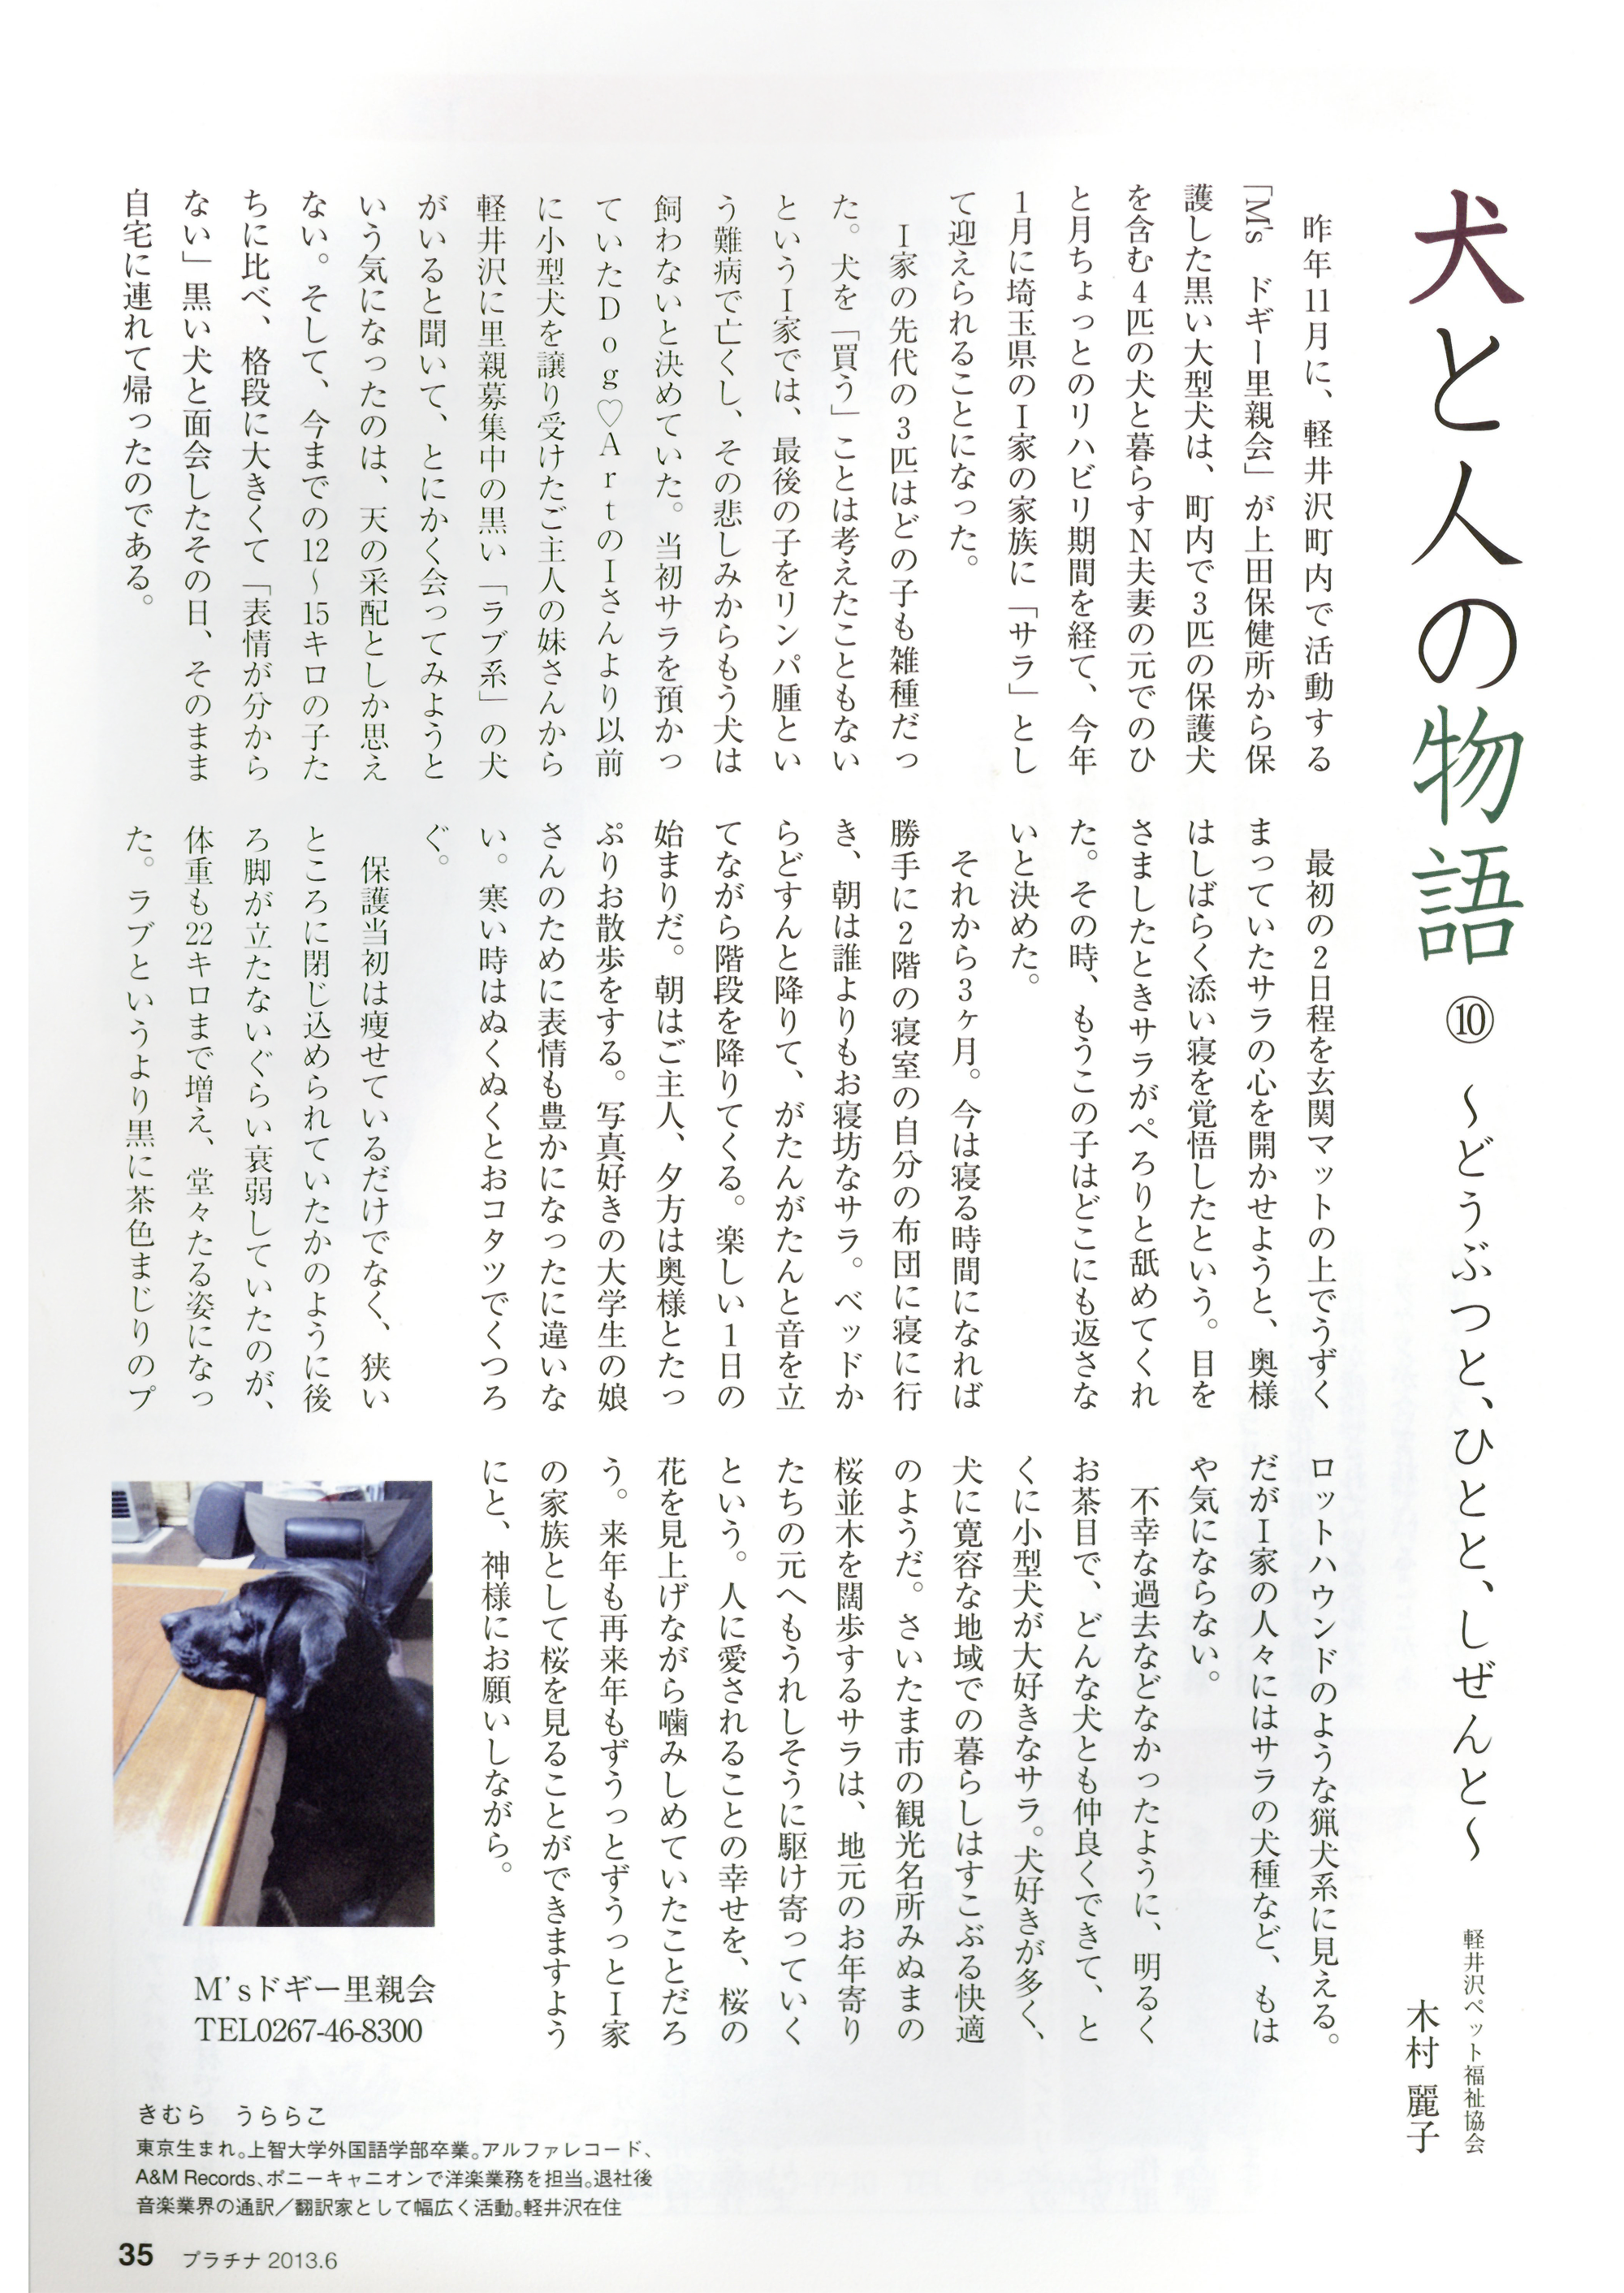 犬と人の物語 ⑩ ～どうぶつと、ひとと、しぜんと～
軽井沢ペット福祉協会
木村 麗子
昨年11月に、軽井沢町内で活動する
「M's ドギー里親会」が上田保健所から保
護した黒い大型犬は、町内で3匹の保護犬
を含む4匹の犬と暮らすN夫妻の元でのひ
と月ちょっとのリハビリ期間を経て、今年
1月に埼玉県のI家の家族に「サラ」とし
て迎えられることになった。
I家の先代の3匹はどの子も雑種だっ
た。犬を「買う」ことは考えたこともない
というI家では、最後の子をリンパ腫とい
う難病で亡くし、その悲しみからもう犬は
飼わないと決めていた。当初サラを預かっ
ていたDog♡ArtのIさんより以前
に小型犬を譲り受けたご主人の妹さんから
軽井沢に里親募集中の黒い「ラブ系」の犬
がいると聞いて、とにかく会ってみようと
いう気になったのは、天の采配としか思え
ない。そして、今までの12～15キロの子た
ちに比べ、格段に大きくて「表情が分から
ない」黒い犬と面会したその日、そのまま
自宅に連れて帰ったのである。
最初の2日程を玄関マットの上でうずく
まっていたサラの心を開かせようと、奥様
はしばらく添い寝を覚悟したという。目を
さましたときサラがぺろりと舐めてくれ
た。その時、もうこの子はどこにも返さな
いと決めた。
それから3ヶ月。今は寝る時間になれば
勝手に2階の寝室の自分の布団に寝に行
き、朝は誰よりもお寝坊なサラ。ベッドか
らどすんと降りて、がたんがたんと音を立
てながら階段を降りてくる。楽しい1日の
始まりだ。朝はご主人、夕方は奥様とたっ
ぷりお散歩をする。写真好きの大学生の娘
さんのために表情も豊かになったに違いな
い。寒い時はぬくぬくとおコタツでくつろ
ぐ。
保護当初は痩せているだけでなく、狭い
ところに閉じ込められていたかのように後
ろ脚が立たないぐらい衰弱していたのが、
体重も22キロまで増え、堂々たる姿になっ
た。ラブというより黒に茶色まじりのプ
ロットハウンドのような猟犬系に見える。
だがI家の人々にはサラの犬種など、もは
や気にならない。
不幸な過去などなかったように、明るく
お茶目で、どんな犬とも仲良くできて、と
くに小型犬が大好きなサラ。犬好きが多く、
犬に寛容な地域での暮らしはすこぶる快適
のようだ。さいたま市の観光名所みぬまの
桜並木を闊歩するサラは、地元のお年寄り
たちの元へもうれしそうに駆け寄っていく
という。人に愛されることの幸せを、桜の
花を見上げながら噛みしめていたことだろ
う。来年も再来年もずうっとずうっとI家
の家族として桜を見ることができますよう
にと、神様にお願いしながら。
M'sドギー里親会
TEL0267-46-8300
きむら うららこ
東京生まれ。上智大学外国語学部卒業。アルファレコード、
A&M Records、ポニーキャニオンで洋楽業務を担当。退社後
音楽業界の通訳／翻訳家として幅広く活動。軽井沢在住
35 プラチナ 2013.6